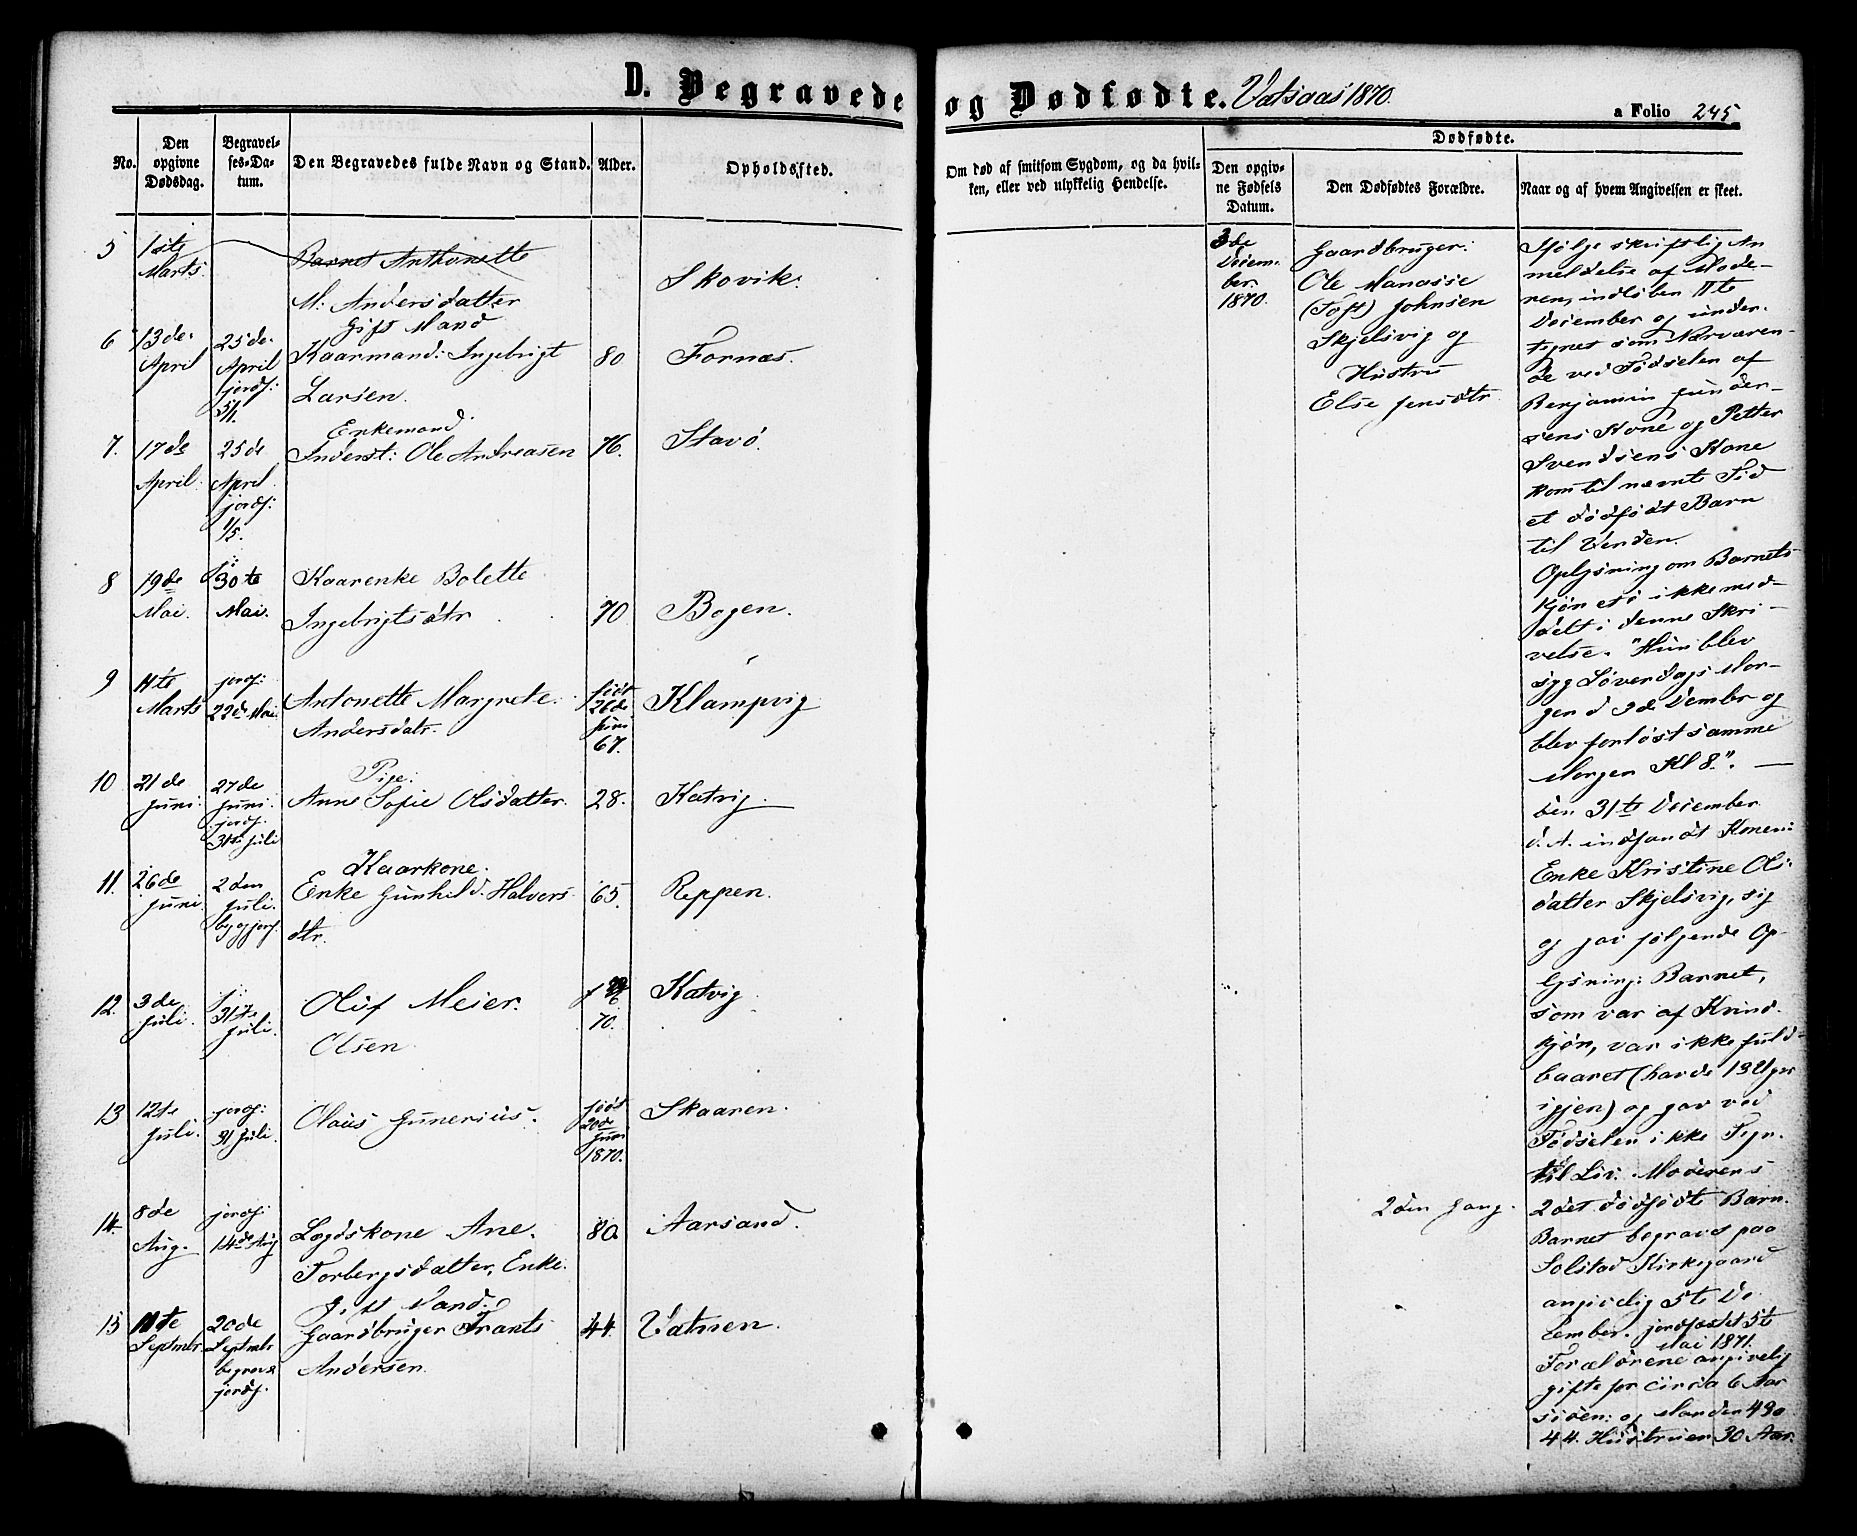 D. Begravede og Dødfødte. Vatsaas 1870.
a Folio 245
No.
Den opgivne Dødsdag.
Begravelses-Datum.
Den Begravedes fulde Navn og Stand.
Alder.
Opholdssted.
Om død af smitsom Sygdom, og da hvilken, eller ved ulykkelig Hendelse.
Dødfødte.
Den opgivne Fødsels Datum.
Den Dødfødtes Forældre.
Naar og af hvem Angivelsen er skeet.
5 1ste Marts
Barnet Anthonette
M. Andersdatter
Skovik.
6 13de April
25de April jordf:
Gift Mand
Kaarmand: Ingebrigt
Larsen.
80
Fornæs.
7. 17de April.
25de April jordf: 1/5.
Enkemand.
Inderst: Ole Andreasen
76.
Stavø
8 19de Mai.
30te Mai.
Kaarenke Bolette
Ingebrigtsdtr
70
Bogen.
9 11te Marts
jordf: 22de Mai
Antonette Margrete
Andersdatr.
født 26de Juni 67.
Klampvig
10 21de Juni.
27de Juni. jordf. 31te Juli
Pige:
Anne Sofie Olsdatter.
28.
Katvig.
11. 26de Juni
2den Juli. b. og jordf.
Kaarkone.
Enke Gunhild Halvers
dtr.
65.
Reppen.
12. 3de Juli.
31te Juli.
Oluf Meier.
Olsen
70.
Katvig
13 12te Juli.
jordf: 31 Juli.
Olaus Gunerius.
født 20de Juni 1870.
Skaaren.
14. 8de Aug.
jordf: 14de Aug
Lægdskone Ane.
Torbergsdatter, Enke.
80.
Aarsand.
15 11te Septmbr
20de Septmbr begrav & jordf.
Gift Mand.
Gaardbruger Frants
Andersen.
44.
Vatnen.
3de
Decem-
ber.
1870.
Gaardbruger:
Ole Manasse
(Toft) Johnsen
Skjelsvig og
Hustru
Else Jensdtr
2den Gang.
Ifølge skriftlig An
meldelse af Mode-
ren, indløben 11te
December og under-
tegnet som Nærværen-
de ved Fødselen af
Benjamin Gunder-
sens Kone og Petter
Svendsens Kone
kom til nævnte Tid
et dødfødt Barn
til Verden.
Oplysning om Barnets
Kjøn etø ikke med-
delt i denne Skri-
velse. "Hun blev
syg Løverdags Mor-
gen d 3de Dembr og
blev forløst samme
Morgen Kl 8.". —
den 31te December
d. A. indfandt Konen:
Enke Kristine Ols-
datter Skjelsvig, sig
og gav følgende Op-
lysning: Barnet,
som var af Kvind-
kjøn, var ikke fuld-
baaret (havde 13 Uger
igjen) og gav ved
Fødselen ikke Tegn
til Liv. Moderens
2det dødfødte Barn.
Barnet begravd paa
Solstad Kirkegaard
angivelig 5te De-
cember. jordfæstet 5te
Mai 1871.
Forældrene angivelig
gifte for circa 6 Aar
siden: og Manden 43 a
44. Hustruen 30 Aar.